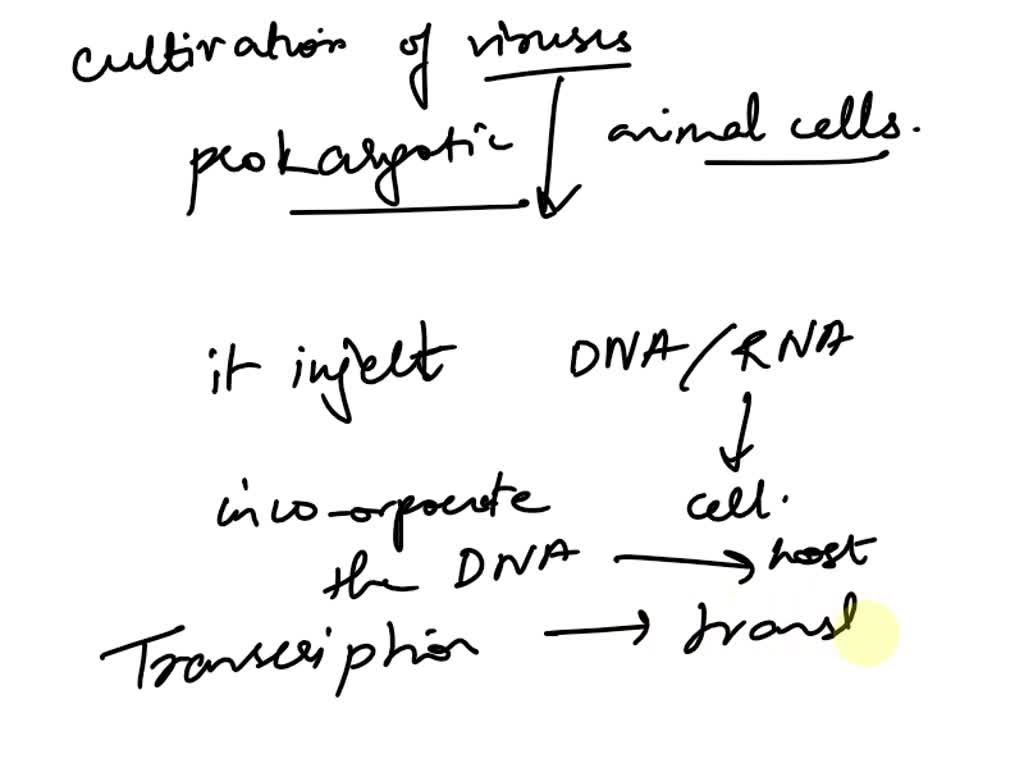 cultivation of viruses
prokaryotic animal cells.
it inject DNA/RNA
inco-orporate cell.
the DNA → host
Transcription → transl